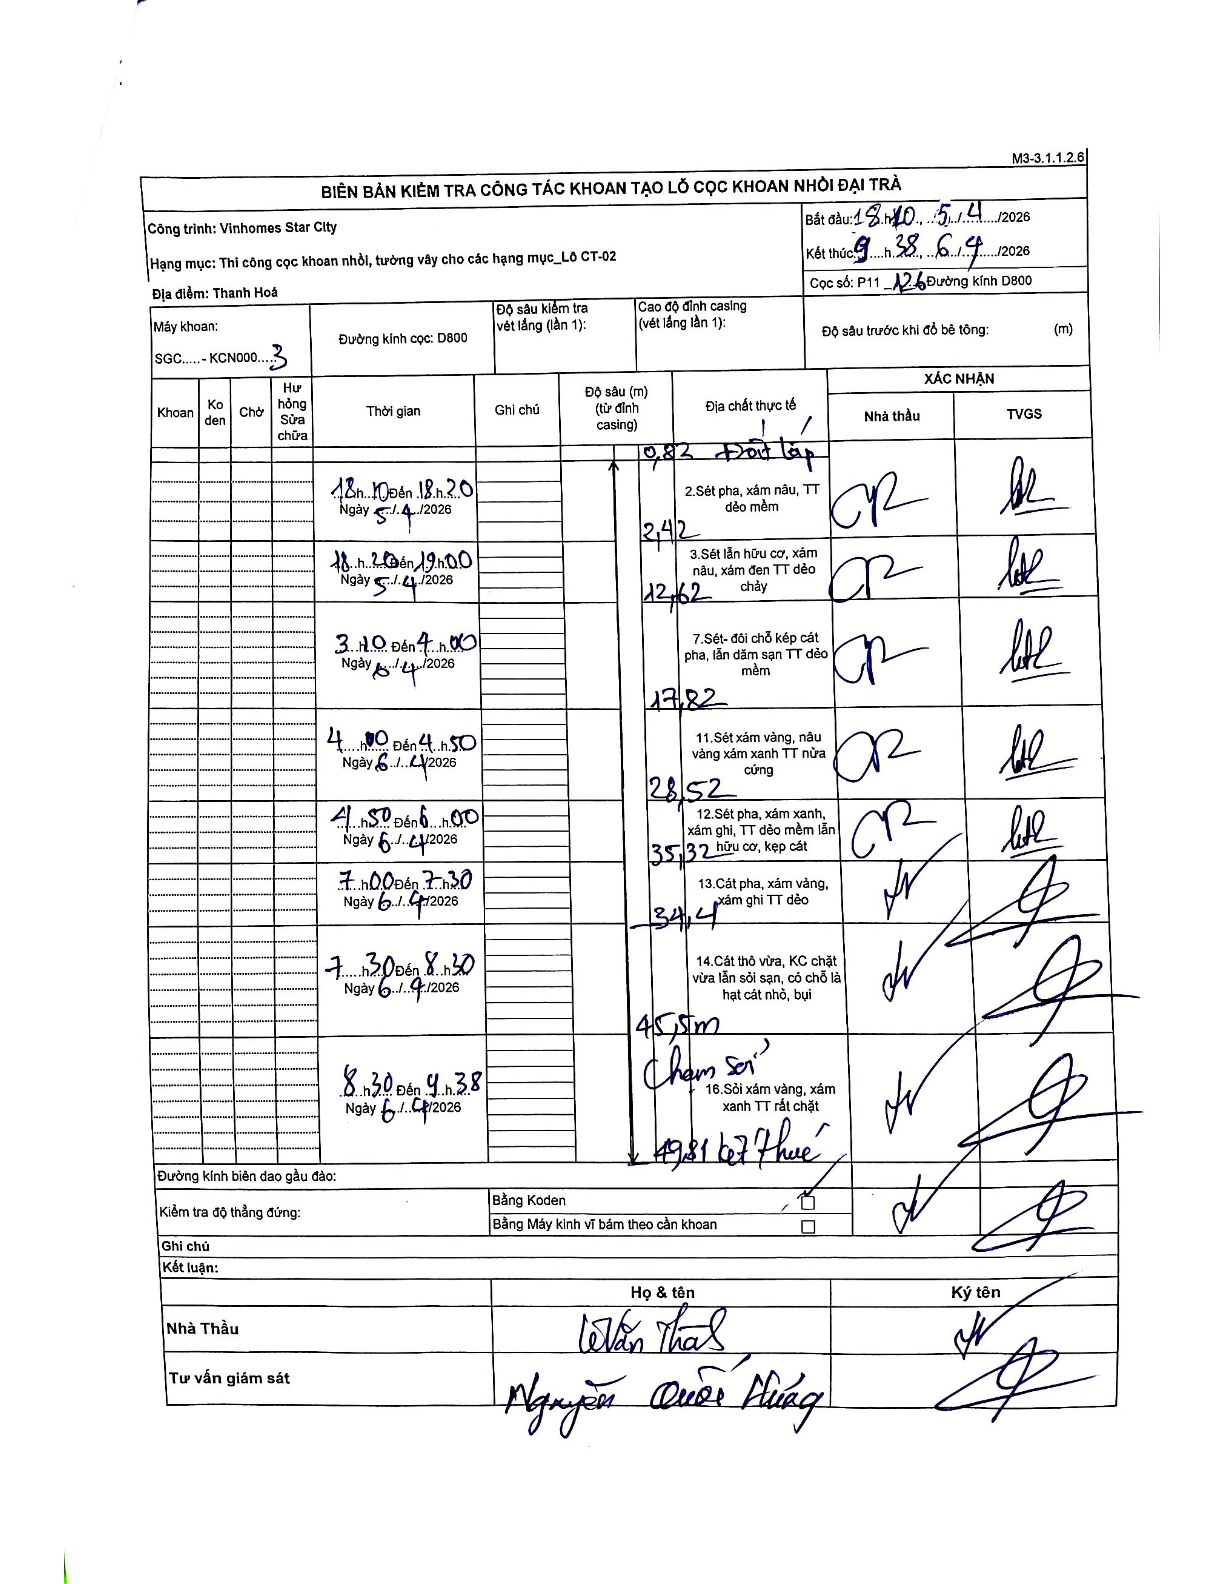 M3-3.1.1.2.6
BIÊN BẢN KIỂM TRA CÔNG TÁC KHOAN TẠO LỖ CỌC KHOAN NHỒI ĐẠI TRÀ
Công trình: Vinhomes Star City
Bắt đầu: 18.h10., ..5../..4..../2026
Kết thúc 9....h.38, ..6./..4...../2026
Hạng mục: Thi công cọc khoan nhồi, tường vây cho các hạng mục_Lô CT-02
Cọc số: P11 _126 Đường kính D800
Địa điểm: Thanh Hoá
Máy khoan:
SGC.....- KCN000....3
Đường kính cọc: D800
Độ sâu kiểm tra
vét lắng (lần 1):
Cao độ đỉnh casing
(vét lắng lần 1):
Độ sâu trước khi đổ bê tông: (m)
Khoan
Ko
den
Chờ
Hư
hỏng
Sửa
chữa
Thời gian
Ghi chú
Độ sâu (m)
(từ đỉnh
casing)
Địa chất thực tế
XÁC NHẬN
Nhà thầu
TVGS
0,82 Đất lấp
18h..10Đến .18.h.20
Ngày 5../.4../2026
2.Sét pha, xám nâu, TT
dẻo mềm
2,42
18..h..20Đến 19.h.00
Ngày 5../..4../2026
3.Sét lẫn hữu cơ, xám
nâu, xám đen TT dẻo
chảy
12,62
3..h10 Đến 4..h.00
Ngày 6../..4../2026
7.Sét- đôi chỗ kẹp cát
pha, lẫn dăm sạn TT dẻo
mềm
17,82
4....h00 Đến 4..h.50
Ngày 6../..4/2026
11.Sét xám vàng, nâu
vàng xám xanh TT nửa
cứng
28,52
4...h50 Đến 6...h.00
Ngày 6../..4/2026
12.Sét pha, xám xanh,
xám ghi, TT dẻo mềm lẫn
hữu cơ, kẹp cát
35,32
7..h00Đến 7.h30
Ngày 6../..4/2026
13.Cát pha, xám vàng,
xám ghi TT dẻo
34,4
7.....h30Đến 8.h30
Ngày 6../..4./2026
14.Cát thô vừa, KC chặt
vừa lẫn sỏi sạn, có chỗ là
hạt cát nhỏ, bụi
45,5m
Chạm sỏi
8.h30 Đến 9..h.38
Ngày 6../..4/2026
16.Sỏi xám vàng, xám
xanh TT rất chặt
49,81 kết thúc
Đường kính biên dao gầu đào:
Kiểm tra độ thẳng đứng:
Bằng Koden
Bằng Máy kinh vĩ bám theo cần khoan
Ghi chú
Kết luận:
Họ & tên
Ký tên
Nhà Thầu
Lê Văn
Tư vấn giám sát
Nguyễn Quốc